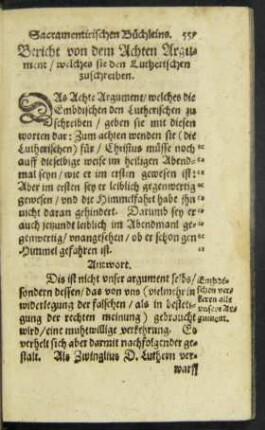 Sacramentirischen Büchleins. 55
Bericht von dem Achten Argu-
ment / welches sie den Lutherischen
zuschreiben.
DAs Achte Argument / welches die
Embdischen den Lutherischen zu
schreiben / geben sie mit diesen
worten dar: Zum achten wenden sie (die
Lutherischen) für / Christus müsse noch
auff dieselbige weise im heiligen Abend-
mal seyn / wie er im ersten gewesen ist:
Aber im ersten sey er leiblich gegenwertig
gewesen / vnd die Himmelfahrt habe jhn
nicht daran gehindert. Darumb sey er
auch jetzundt leiblich im Abendmanl ge-
genwertig / vnangesehen / ob er schon gen
Himmel gefahren ist.
Antwort.
Dis ist nicht vnser argument selbs /
sondern dessen / das von vns (vielmehr in
widerlegung der falschen / als in besteti-
gung der rechten meinung) gebraucht
wird / eine muhtwillige verkehrung. Es
verhelt sich aber darmit nachfolgender ge-
stalt. Als Zwinglius D. Luthern ver-
warff
schen ver-
keren alle
vnsere Ar-
gument.